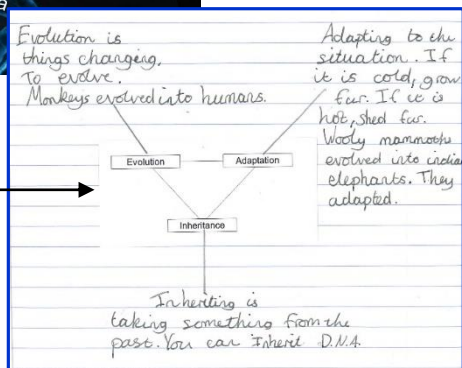 a
Evolution is
things changing.
To evolve.
Monkeys evolved into humans.
Adapting to the
situation. If
it is cold, grow
fur. If it is
hot, shed fur.
Wooly mammoths
evolved into indian
elephants. They
adapted.
Evolution
Adaptation
Inheritance
Inheriting is
taking something from the
past. You can Inherit D.N.A